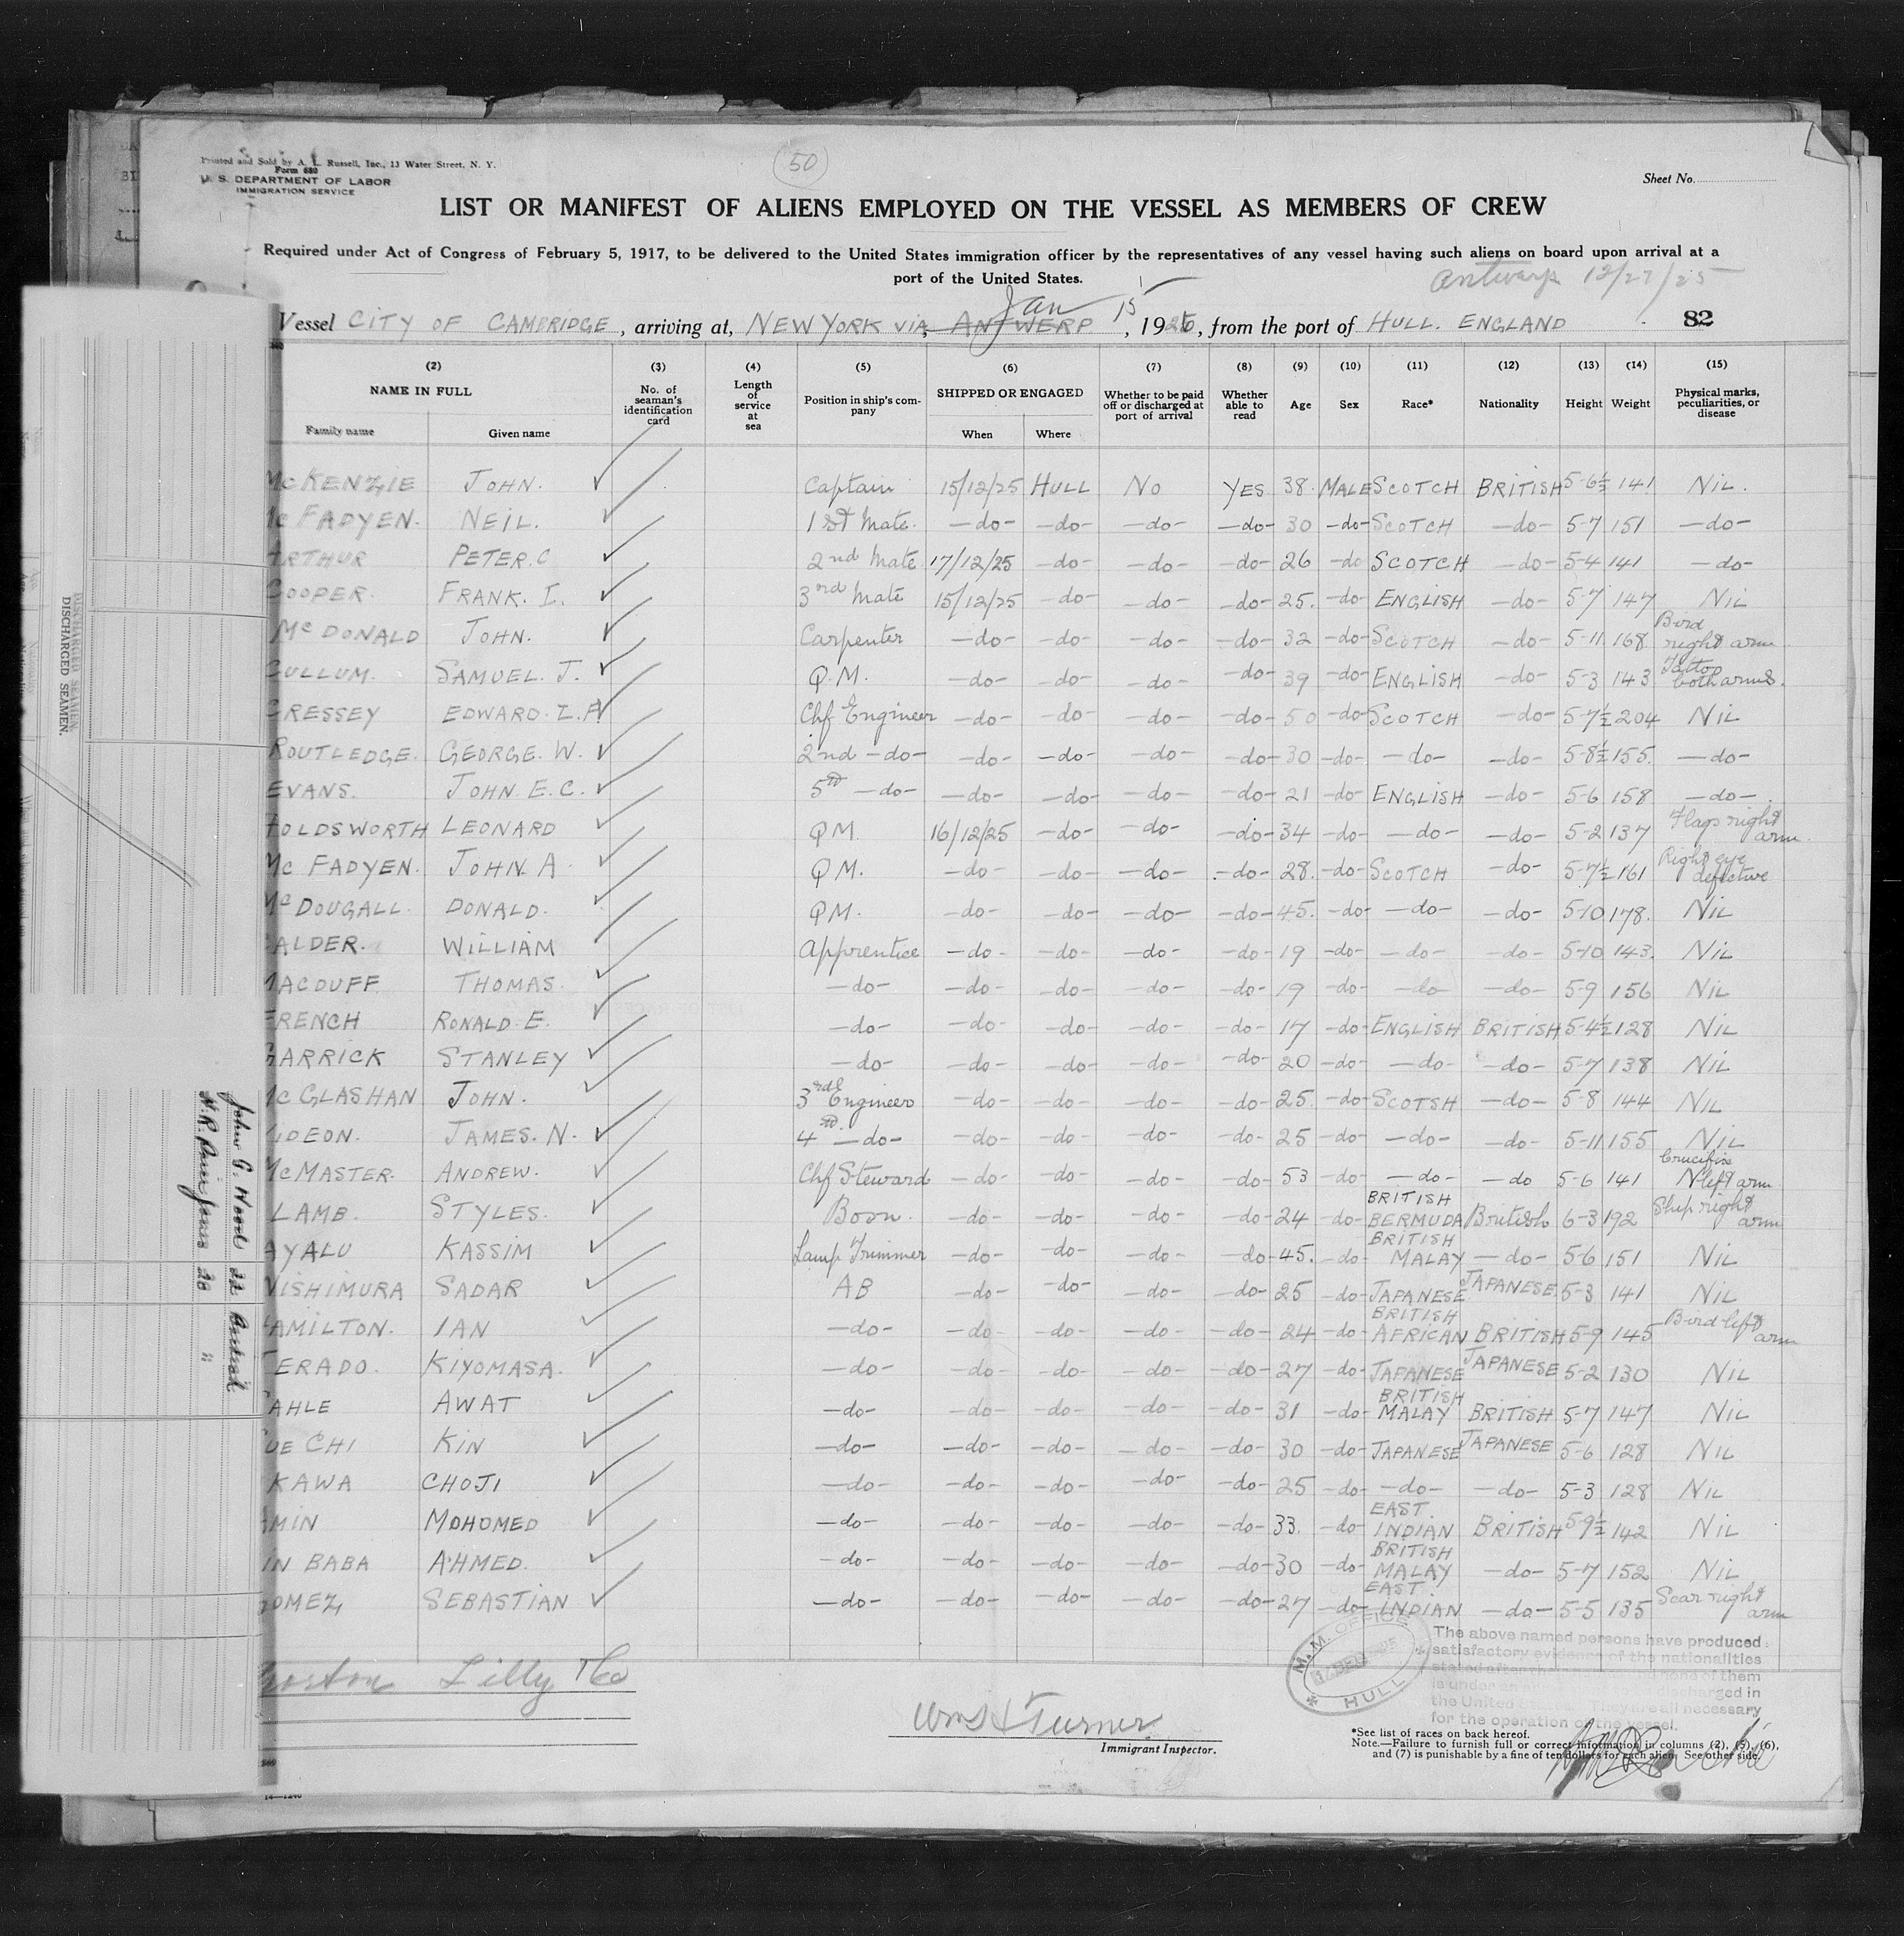 Printed and Sold by A. L. Russell, Inc., 13 Water Street, N. Y.
Form 680
U. S. DEPARTMENT OF LABOR
IMMIGRATION SERVICE
50
Sheet No.
LIST OR MANIFEST OF ALIENS EMPLOYED ON THE VESSEL AS MEMBERS OF CREW
Required under Act of Congress of February 5, 1917, to be delivered to the United States immigration officer by the representatives of any vessel having such aliens on board upon arrival at a
port of the United States.
Antwerp 12/27/25
Jan 15
Vessel CITY OF CAMBRIDGE, arriving at, NEW YORK VIA ANTWERP, 1926, from the port of HULL. ENGLAND 82
(2) (3) (4) (5) (6) (7) (8) (9) (10) (11) (12) (13) (14) (15)
NAME IN FULL No. of seaman's identification card Length of service at sea Position in ship's company SHIPPED OR ENGAGED Whether to be paid off or discharged at port of arrival Whether able to read Age Sex Race* Nationality Height Weight Physical marks, peculiarities, or disease
Family name Given name When Where
McKENZIE JOHN. Captain 15/12/25 HULL NO YES 38 MALE SCOTCH BRITISH 5-6½ 141 NIL.
Mc FADYEN. NEIL. 1st Mate. -do- -do- -do- -do- 30 -do- SCOTCH -do- 5-7 151 -do-
ARTHUR PETER. C 2nd Mate 17/12/25 -do- -do- -do- 26 -do SCOTCH -do- 5-4 141 -do-
COOPER. FRANK. I. 3rd Mate 15/12/25 -do- -do- -do- 25. -do- ENGLISH -do- 5-7 147 NIL
McDONALD JOHN. Carpenter -do- -do- -do- -do- 32 -do- SCOTCH -do- 5-11 168 Bird right arm
CULLUM. SAMUEL. J. Q.M. -do- -do- -do- -do- 39 -do- ENGLISH -do- 5-3 143 Tattoo both arms.
GRESSEY EDWARD. Chf Engineer -do- -do- -do- -do- 50 -do- SCOTCH -do- 5-7½ 204 NIL
ROUTLEDGE. GEORGE. W. 2nd -do- -do- -do- -do- -do- 30 -do- -do- -do- 5-8½ 155. -do-
EVANS. JOHN. E. C. 5th -do- -do- -do- -do- -do- 21 -do- ENGLISH -do- 5-6 158 -do-
HOLDSWORTH LEONARD QM. 16/12/25 -do- -do- -do- 34 -do- -do- -do- 5-2 137 Flags right arm.
Mc FADYEN. JOHN. A QM. -do- -do- -do- -do- 28. -do- SCOTCH -do- 5-7½ 161 Right eye defective
McDOUGALL. DONALD. QM. -do- -do- -do- -do- 45. -do- -do- -do- 5-10 178. NIL
CALDER. WILLIAM Apprentice -do- -do- -do- -do- 19 -do- -do- -do- 5-10 143. NIL
MACDUFF THOMAS. -do- -do- -do- -do- -do- 19 -do- -do- -do- 5-9 156 NIL
FRENCH RONALD. E. -do- -do- -do- -do- -do- 17 -do- ENGLISH BRITISH 5-4½ 128 NIL
GARRICK STANLEY -do- -do- -do- -do- -do- 20 -do- -do- -do- 5-7 138 NIL
Mc GLASHAN JOHN. 3rd Engineer -do- -do- -do- -do- 25. -do- SCOTSH -do- 5-8 144 NIL
GIDEON. JAMES. N. 4th -do- -do- -do- -do- -do- 25 -do- -do- -do- 5-11 155 NIL
McMASTER. ANDREW. Chf Steward -do- -do- -do- -do- 53 -do- -do- -do 5-6 141 Crucifix left arm
LAMB. STYLES. Bosn. -do- -do- -do- -do- 24 -do- BRITISH BERMUDA British 6-3 192 Ship right arm
AYALU KASSIM Lamp Trimmer -do- -do- -do- -do- 45. -do- BRITISH MALAY -do- 5-6 151 NIL
NISHIMURA SADAR AB -do- -do- -do- -do- 25 -do- JAPANESE JAPANESE 5-3 141 NIL
HAMILTON. IAN -do- -do- -do- -do- -do- 24 -do- BRITISH AFRICAN BRITISH 5-9 145 Bird left arm
TERADO. KIYOMASA. -do- -do- -do- -do- -do- 27 -do- JAPANESE JAPANESE 5-2 130 NIL
AHLE AWAT -do- -do- -do- -do- -do- 31 -do- BRITISH MALAY BRITISH 5-7 147 NIL
UE CHI KIN -do- -do- -do- -do- -do- 30 -do- JAPANESE JAPANESE 5-6 128 NIL
KAWA CHOJI -do- -do- -do- -do- -do- 25 -do- -do- -do- 5-3 128 NIL
AMIN MOHOMED -do- -do- -do- -do- -do- 33. -do- EAST INDIAN BRITISH 5-9½ 142 NIL
IN BABA AHMED. -do- -do- -do- -do- -do- 30 -do- BRITISH MALAY -do- 5-7 152 NIL
GOMEZ SEBASTIAN -do- -do- -do- -do- -do- 27 -do- EAST INDIAN -do- 5-5 135 Scar right arm
Norton Lilly & Co
M.M. OFFICE
HULL
The above named persons have produced
satisfactory evidence of the nationalities
the United States. They are all necessary
for the operation of the vessel.
Immigrant Inspector.
*See list of races on back hereof.
Note.—Failure to furnish full or correct information in columns (2), (5), (6),
and (7) is punishable by a fine of ten dollars for each alien. See other side.
DISCHARGED SEAMEN.
DISCHARGED SEAMEN.
John G. Wood 22